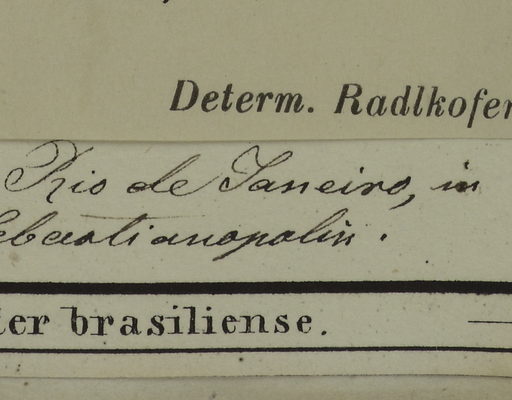 Determ. Radlkofer
Rio de Janeiro, in
ebastianopolin.
ter brasiliense.